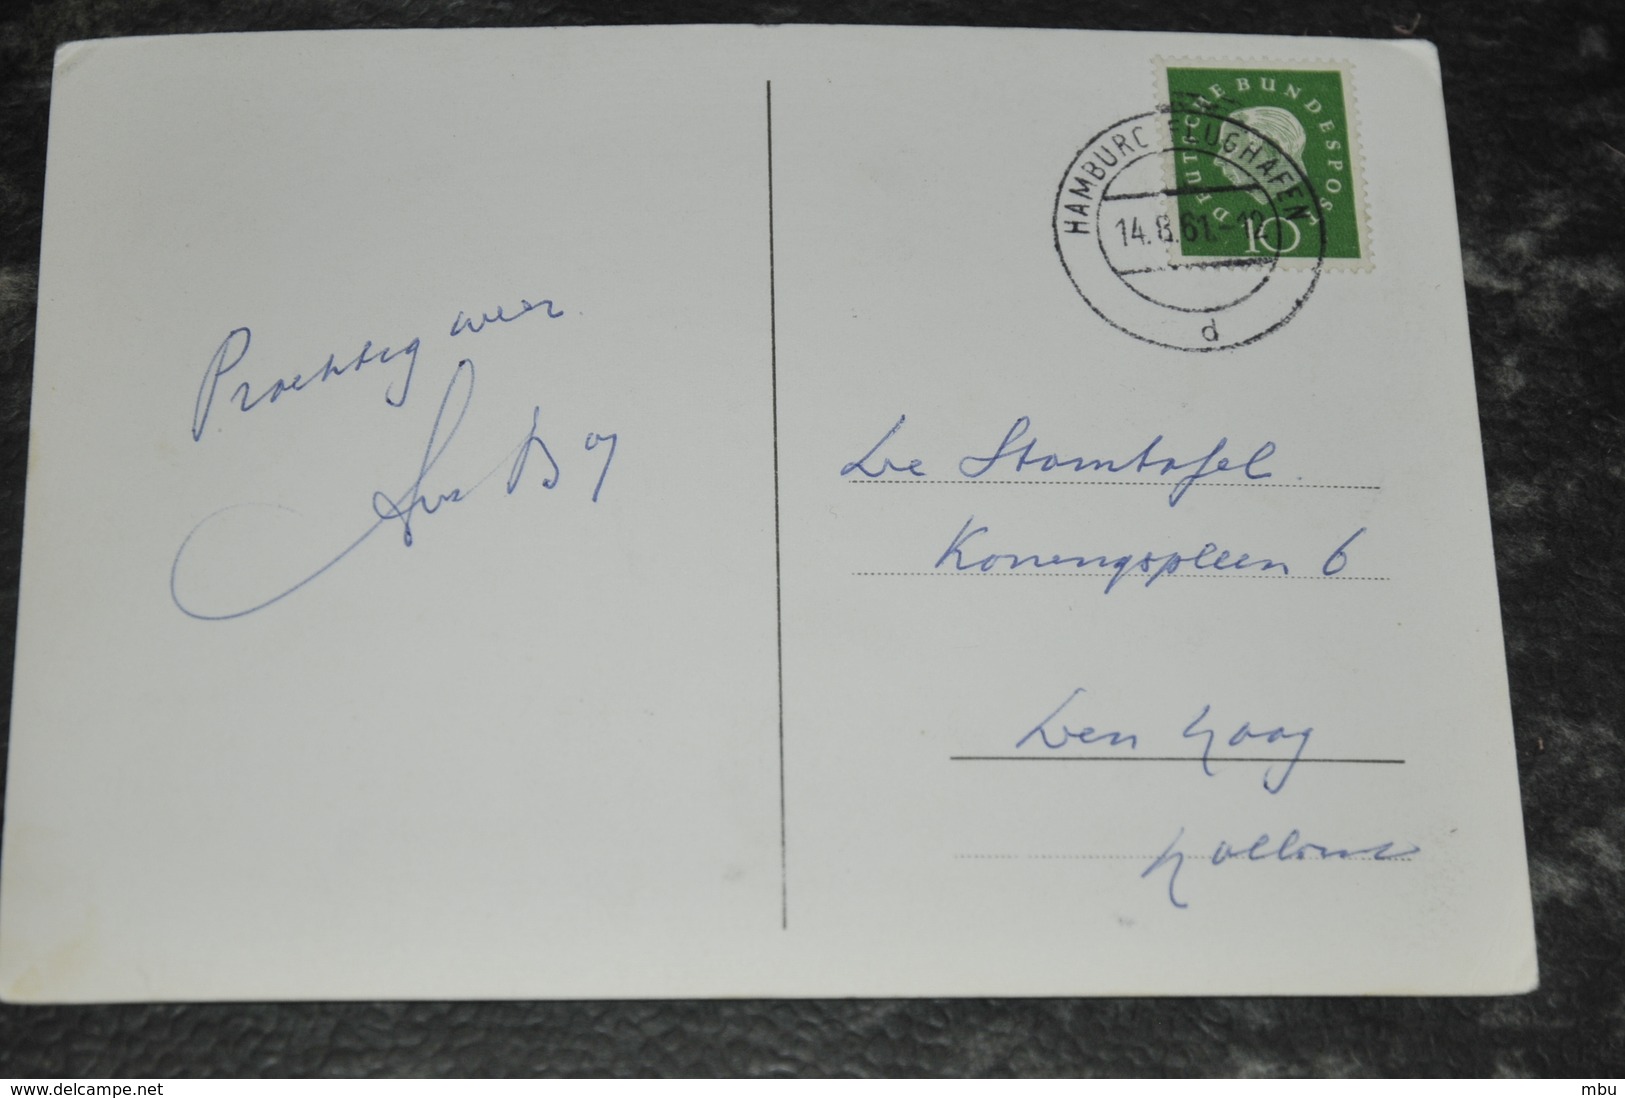 DEUTSCHE BUNDESPOST
10
HAMBURG FLUGHAFEN
14.8.61.-12
d
Prachtig weer.
De Stamtafel.
Koningsplein 6
Den Haag
Holland
www.delcampe.net
mbu